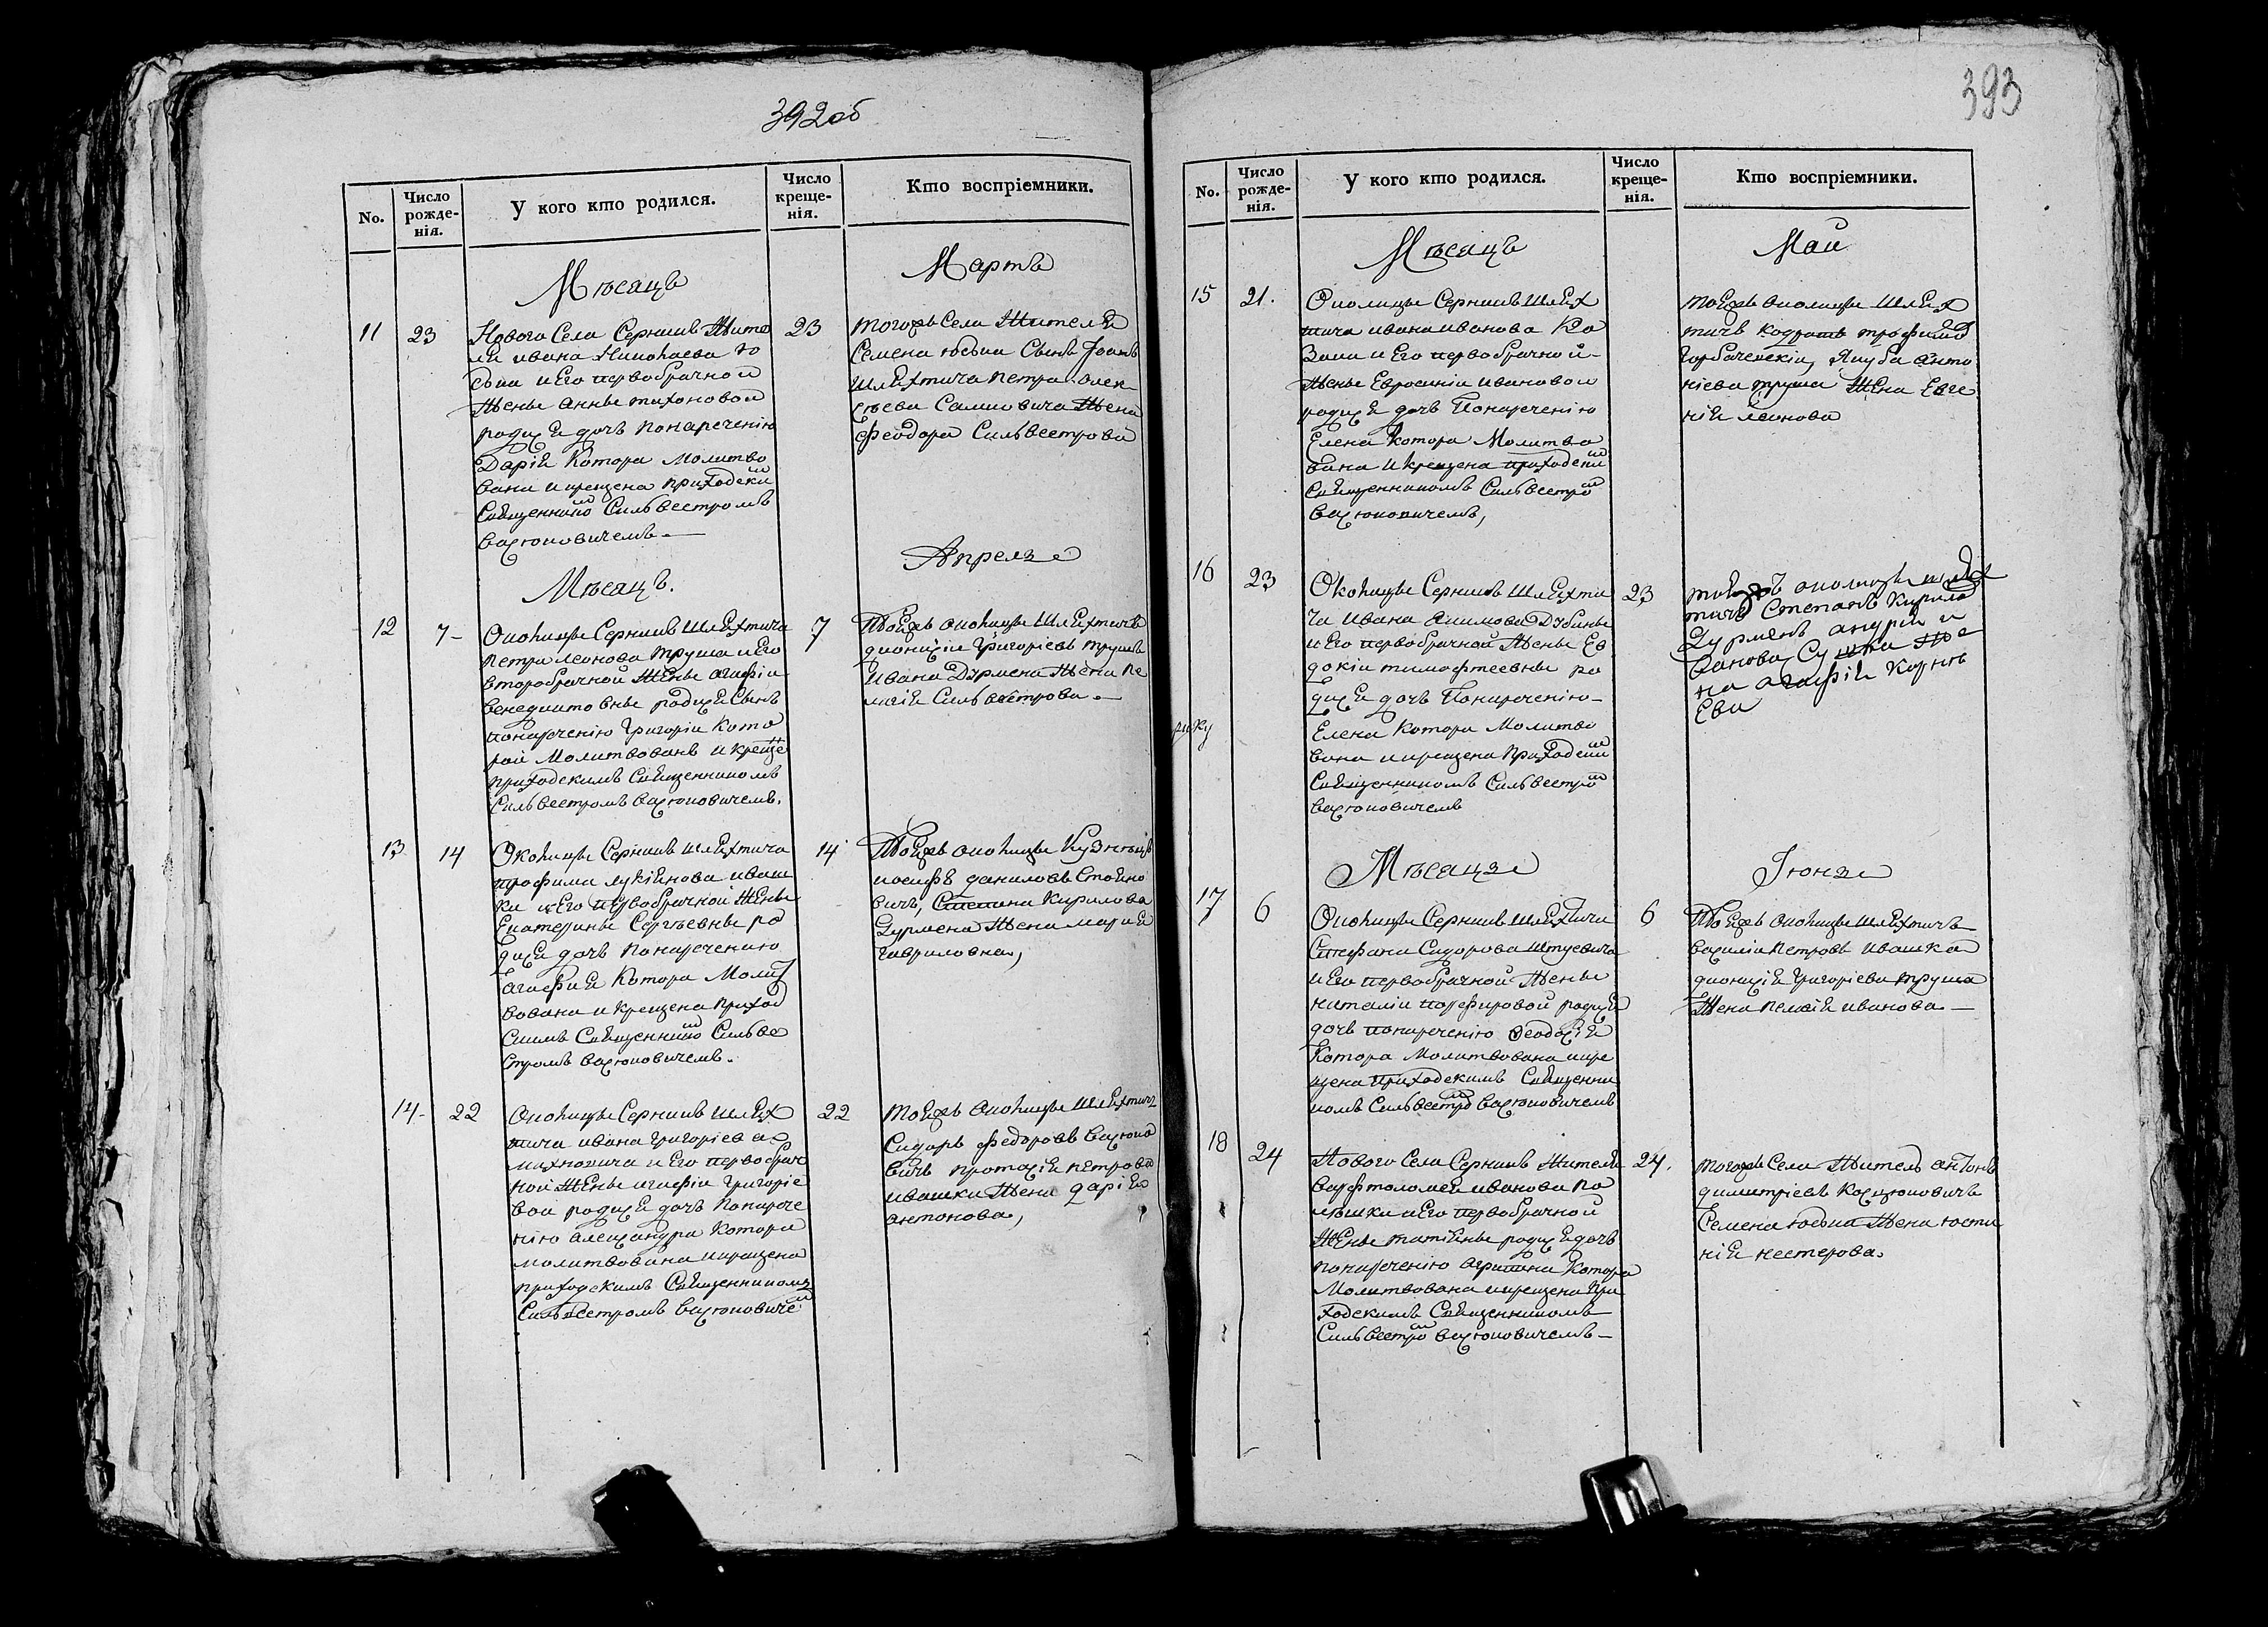 392об
No.
Число рожде-нія.
У кого кто родился.
Число креще-нія.
Кто воспріемники.
Мѣсяцъ
Мартъ
11 23
Нового Села Серникъ Жите
ля ивана Николаева Ю
дыи и Его первобрачной
Женые Анные тихоновой
родися дочь понареченію
Дарія Котора Молитво
вана и крещена приходски
Священнико Сильвестромъ
Васюковичемъ.
23
тогожъ Села Жителя
Семена юдыи Сынъ
шляхтича Петра Алек
сѣева Жена
феодора Сильвестрова
Мѣсяцъ.
Апрелъ
12 7
Околицы Серникъ шляхтича
Петра леонова труша и Его
второбрачной Жены агафіи
венедиктовны родися Сынъ
понареченію Григорій Кото
рой Молитвованъ и креще
приходскимъ Священникомъ
Сильвестромъ васюковичемъ.
7
Тойжъ околицы шляхтичъ
дионисій Григоріевъ трушъ
Ивана Дурмена Жена Пе
лагія Сильвестрова.
13 14
Околицы Серникъ шляхтича
трофима лукіянова иваш
ки и Его первобрачной Жены
Екатерины Сергѣевны ро
дися дочь понареченію
агафия Котора Молит
вована и крещена приход
скимъ Священнико Сильве
стромъ васюковичемъ.
14
Тойжъ околицы Кузнецъ
иосифъ даниловъ Стойно
вичъ, Степана Кирилова
Дурмена Жена мария
гавриловна,
14 22
Околицы Серникъ шлях
тича ивана Григоріева
махновича и Его первобрач
ной Жены агафіи Григоріе
вои родися дочь понарече
нію александра Котора
молитвована и крещена
приходскимъ Священникомъ
Сильвестромъ васюковиче
22
тойжъ околицы шляхтичъ
Сидоръ федоровъ васюко
вичъ протасія петрова
ивашки Жена дарія
антонова,
393
No.
Число рожде-нія.
У кого кто родился.
Число креще-нія.
Кто воспріемники.
Мѣсяцъ
Май
15 21.
Околицы Серникъ шлях
тича ивана иванова Ко
зака и Его первобрачной
Женые Евросиніи ивановои
родися дочь понареченію
Елена Котора Молитво
вана и крещена приходски
Священникомъ Сильвестро
васюковичемъ,
тойжъ околицы шлях
тичъ Кодратъ трофимо
горбачевскій, Якуба анто
ніева труша Жена Евге
нія леонова
16 23
Околицы Серникъ шляхти
ча ивана акимова Дубины
и Его первобрачной Жены Ев
докіи тимофтеевны ро
дися дочь понареченію
Елена Котора Молитво
вана и крещена приходски
Священникомъ Сильвестро
васюковичемъ
23
тойжъ околицы шлях
тичъ Степанъ Кирило
Дурменъ андрія и
ванова Жe
на агафія Корнѣ
Ева
Мѣсяцъ
Іюнъ
17 6
Околицы Серникъ шляхтича
Стефана Сидорова
и Его первобрачной Жены
наталіи порфировой родися
дочь понареченію Феодосія
Котора Молитвована икре
щена приходскимъ Священни
комъ Сильвестро васюковичемъ
6
Тойжъ околицы шляхтичъ
василій Петровъ ивашка
дионисія Григоріева труша
Жена пелагія иванова.
18 24
Нового Села Серникъ Жителя
варфтоломея иванова По
лѣшки и Его первобрачной
Жены татіяны родися дочь
понареченію агрипина Котора
Молитвована и крещена при
ходскимъ Священникомъ
Сильвестро васюковичемъ
24.
тогожъ Села Житель антонъ
димитріевъ Косцюковичъ
Семена юдыи Жена юсти
нія нестерова.